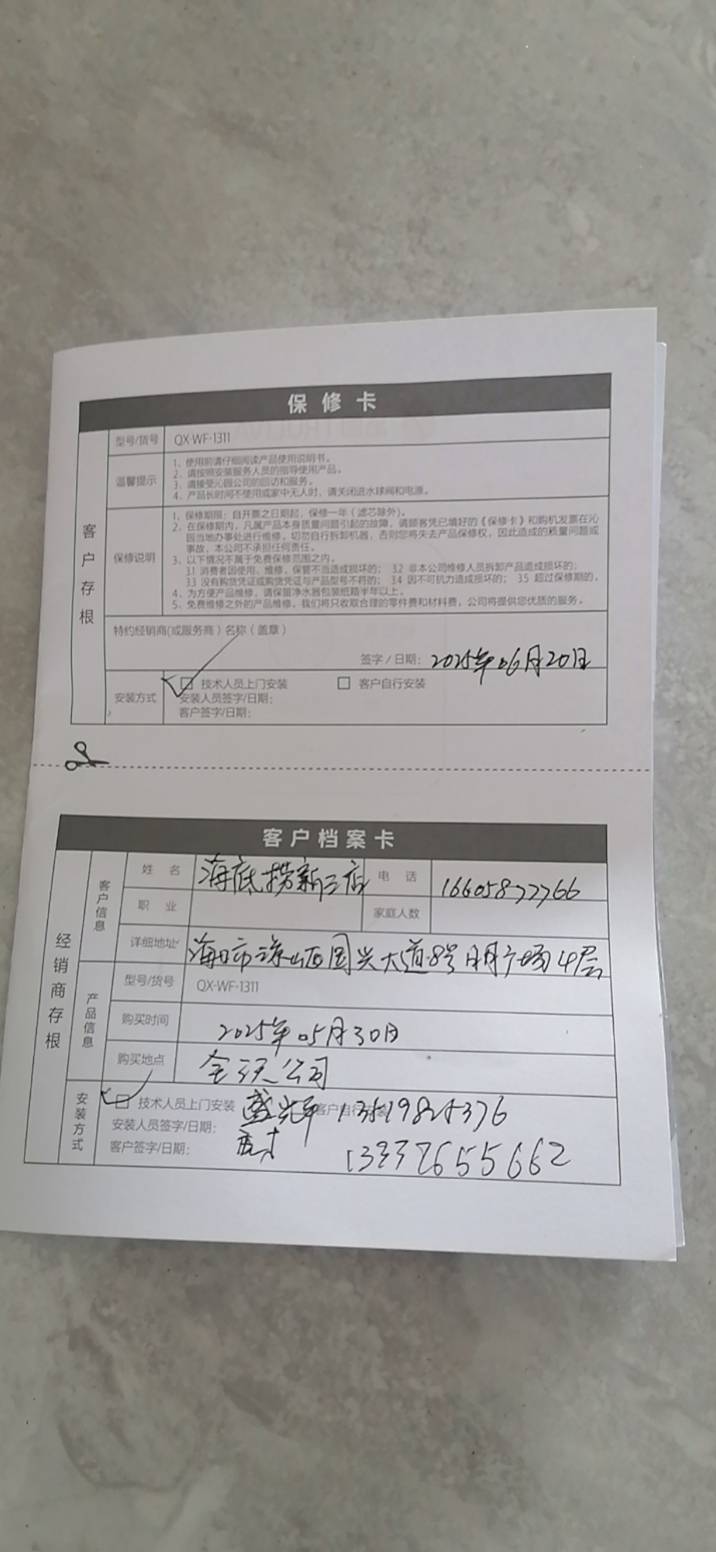 保修卡
客户存根
型号/货号 QX-WF-1311
温馨提示
1、使用前请仔细阅读产品使用说明书。
2、请按照安装服务人员的指导使用产品。
3、请接受沁园公司的回访和服务。
4、产品长时间不使用或家中无人时，请关闭进水球阀和电源。
保修说明
1、保修期限：自开票之日期起，保修一年（滤芯除外）。
2、在保修期内，凡属产品本身质量问题引起的故障，请顾客凭已填好的《保修卡》和购机发票在沁
园当地办事处进行维修。切勿自行拆卸机器，否则您将失去产品保修权，因此造成的质量问题或
事故，本公司不承担任何责任。
3、以下情况不属于免费保修范围之内。
3.1 消费者因使用、维修、保管不当造成损坏的； 3.2 非本公司维修人员拆卸产品造成损坏的；
3.3 没有购货凭证或购货凭证与产品型号不符的； 3.4 因不可抗力造成损坏的； 3.5 超过保修期的。
4、为方便产品维修，请保留净水器包装纸箱半年以上。
5、免费维修之外的产品维修，我们将只收取合理的零件费和材料费，公司将提供您优质的服务。
特约经销商(或服务商）名称（盖章）
签字／日期： 2025年06月20日
安装方式
技术人员上门安装 客户自行安装
安装人员签字/日期：
客户签字/日期：
客户档案卡
经销商存根
客户信息
姓 名 海底捞新三店 电 话 16605877766
职 业 家庭人数
详细地址 海口市琼山区国兴大道8号日月广场4层
产品信息
型号/货号 QX-WF-1311
购买时间 2025年05月30日
购买地点 公司
安装方式
技术人员上门安装 客户自行安装 13519825376
安装人员签字/日期：
客户签字/日期： 13337655662